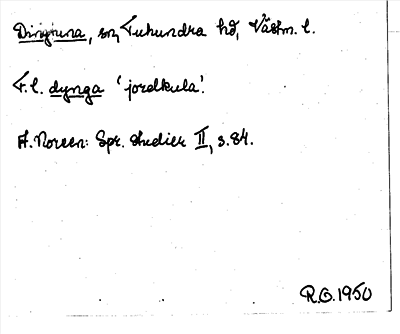 Dingtuna, sn, Tuhundra hd, Västm. l.
F.l. dynga 'jordkula'.
A. Noreen: Spr. studier II, s. 84.
R.O. 1950